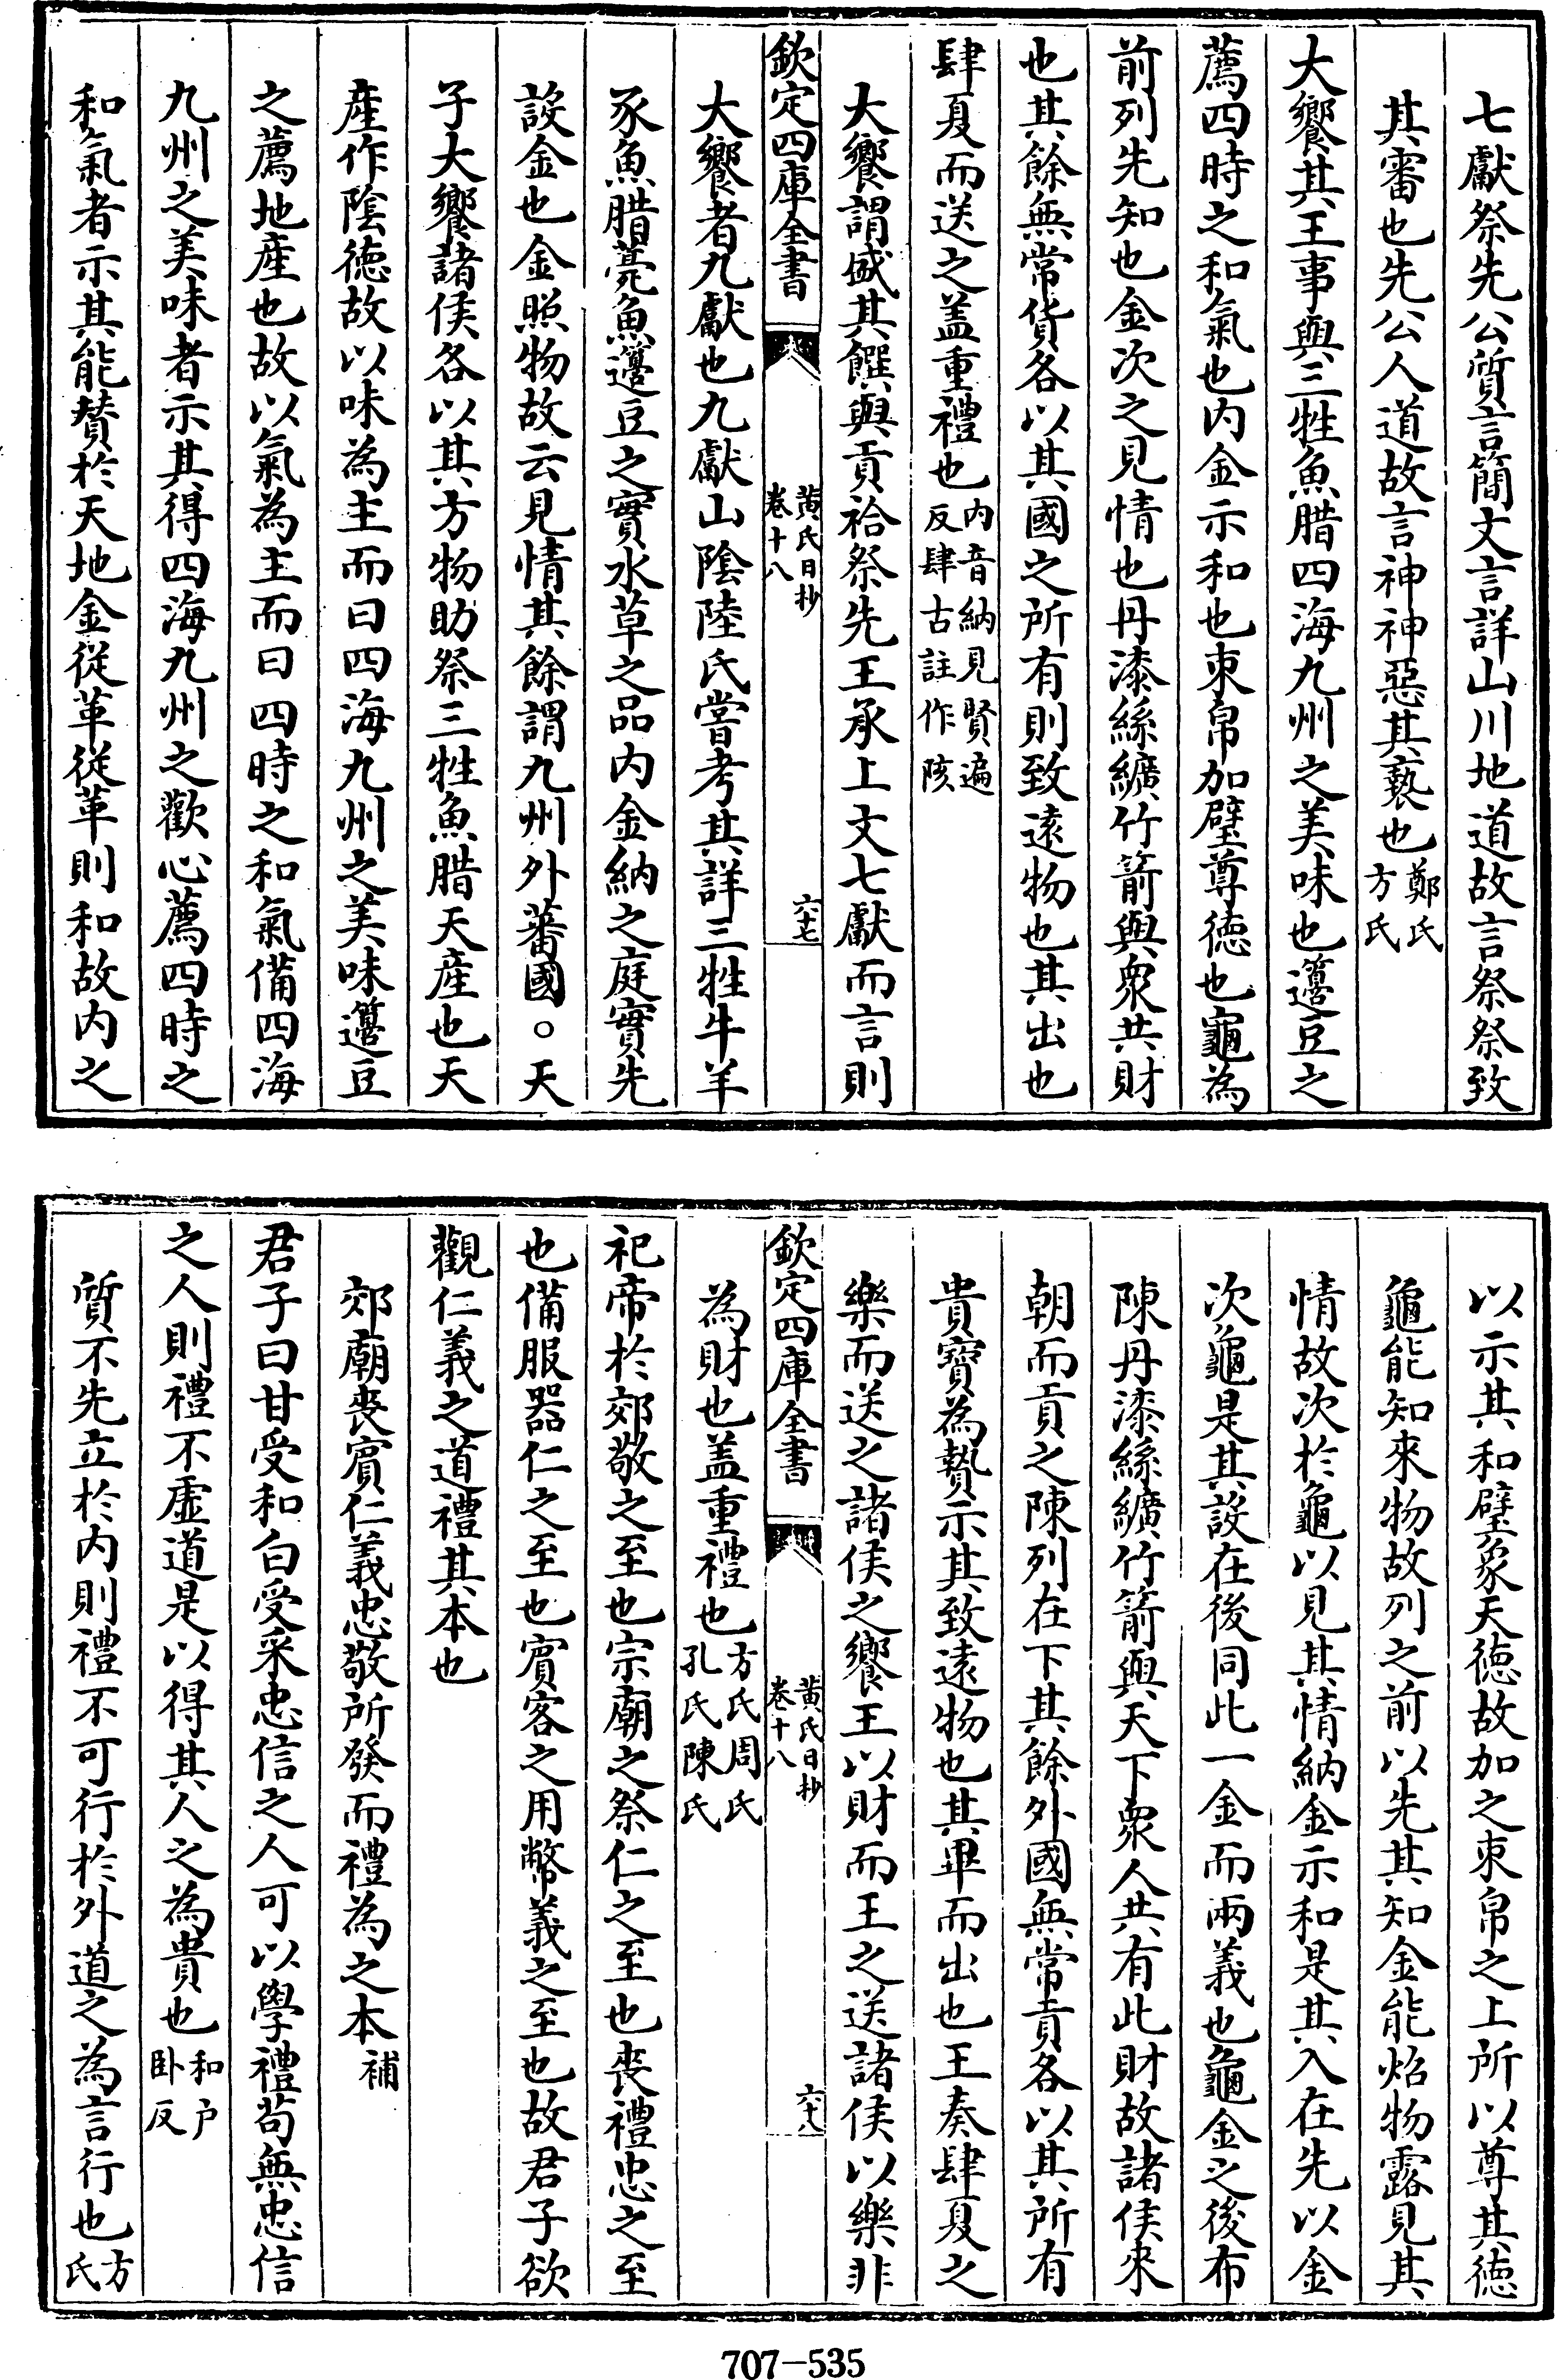 七獻祭先公質言簡文言詳山川地道故言祭祭致
其審也先公人道故言神神惡其褻也鄭氏方氏
大饗其王事與三牲魚腊四海九州之美味也籩豆之
薦四時之和氣也内金示和也束帛加璧尊徳也龜為
前列先知也金次之見情也丹漆絲纊竹箭與衆共財
也其餘無常貨各以其國之所有則致逺物也其出也
肆夏而送之盖重禮也内音納見賢遍反肆古註作陔
大饗謂盛其饌與貢祫祭先王承上文七獻而言則
欽定四庫全書 黄氏日抄卷十八 六十七
大饗者九獻也九獻山隂陸氏嘗考其詳三牲牛羊
豕魚腊薧魚籩豆之實水草之品内金納之庭實先
設金也金照物故云見情其餘謂九州外蕃國○天
子大饗諸侯各以其方物助祭三牲魚腊天産也天
産作隂徳故以味為主而曰四海九州之美味籩豆
之薦地産也故以氣為主而曰四時之和氣備四海
九州之美味者示其得四海九州之歡心薦四時之
和氣者示其能賛於天地金從革從革則和故内之
以示其和璧象天徳故加之束帛之上所以尊其徳
龜能知來物故列之前以先其知金能炤物露見其
情故次於龜以見其情納金示和是其入在先以金
次龜是其設在後同此一金而兩義也龜金之後布
陳丹漆絲纊竹箭與天下衆人共有此財故諸侯來
朝而貢之陳列在下其餘外國無常貢各以其所有
貴寳為贄示其致逺物也其畢而出也王奏肆夏之
樂而送之諸侯之饗王以財而王之送諸侯以樂非
欽定四庫全書 黄氏日抄卷十八 六十八
為財也盖重禮也方氏周氏孔氏陳氏
祀帝於郊敬之至也宗廟之祭仁之至也喪禮忠之至
也備服器仁之至也賔客之用幣義之至也故君子欲
觀仁義之道禮其本也
郊廟喪賔仁義忠敬所發而禮為之本補
君子曰甘受和白受采忠信之人可以學禮苟無忠信
之人則禮不虚道是以得其人之為貴也和户卧反
質不先立於内則禮不可行於外道之為言行也方氏
707-535